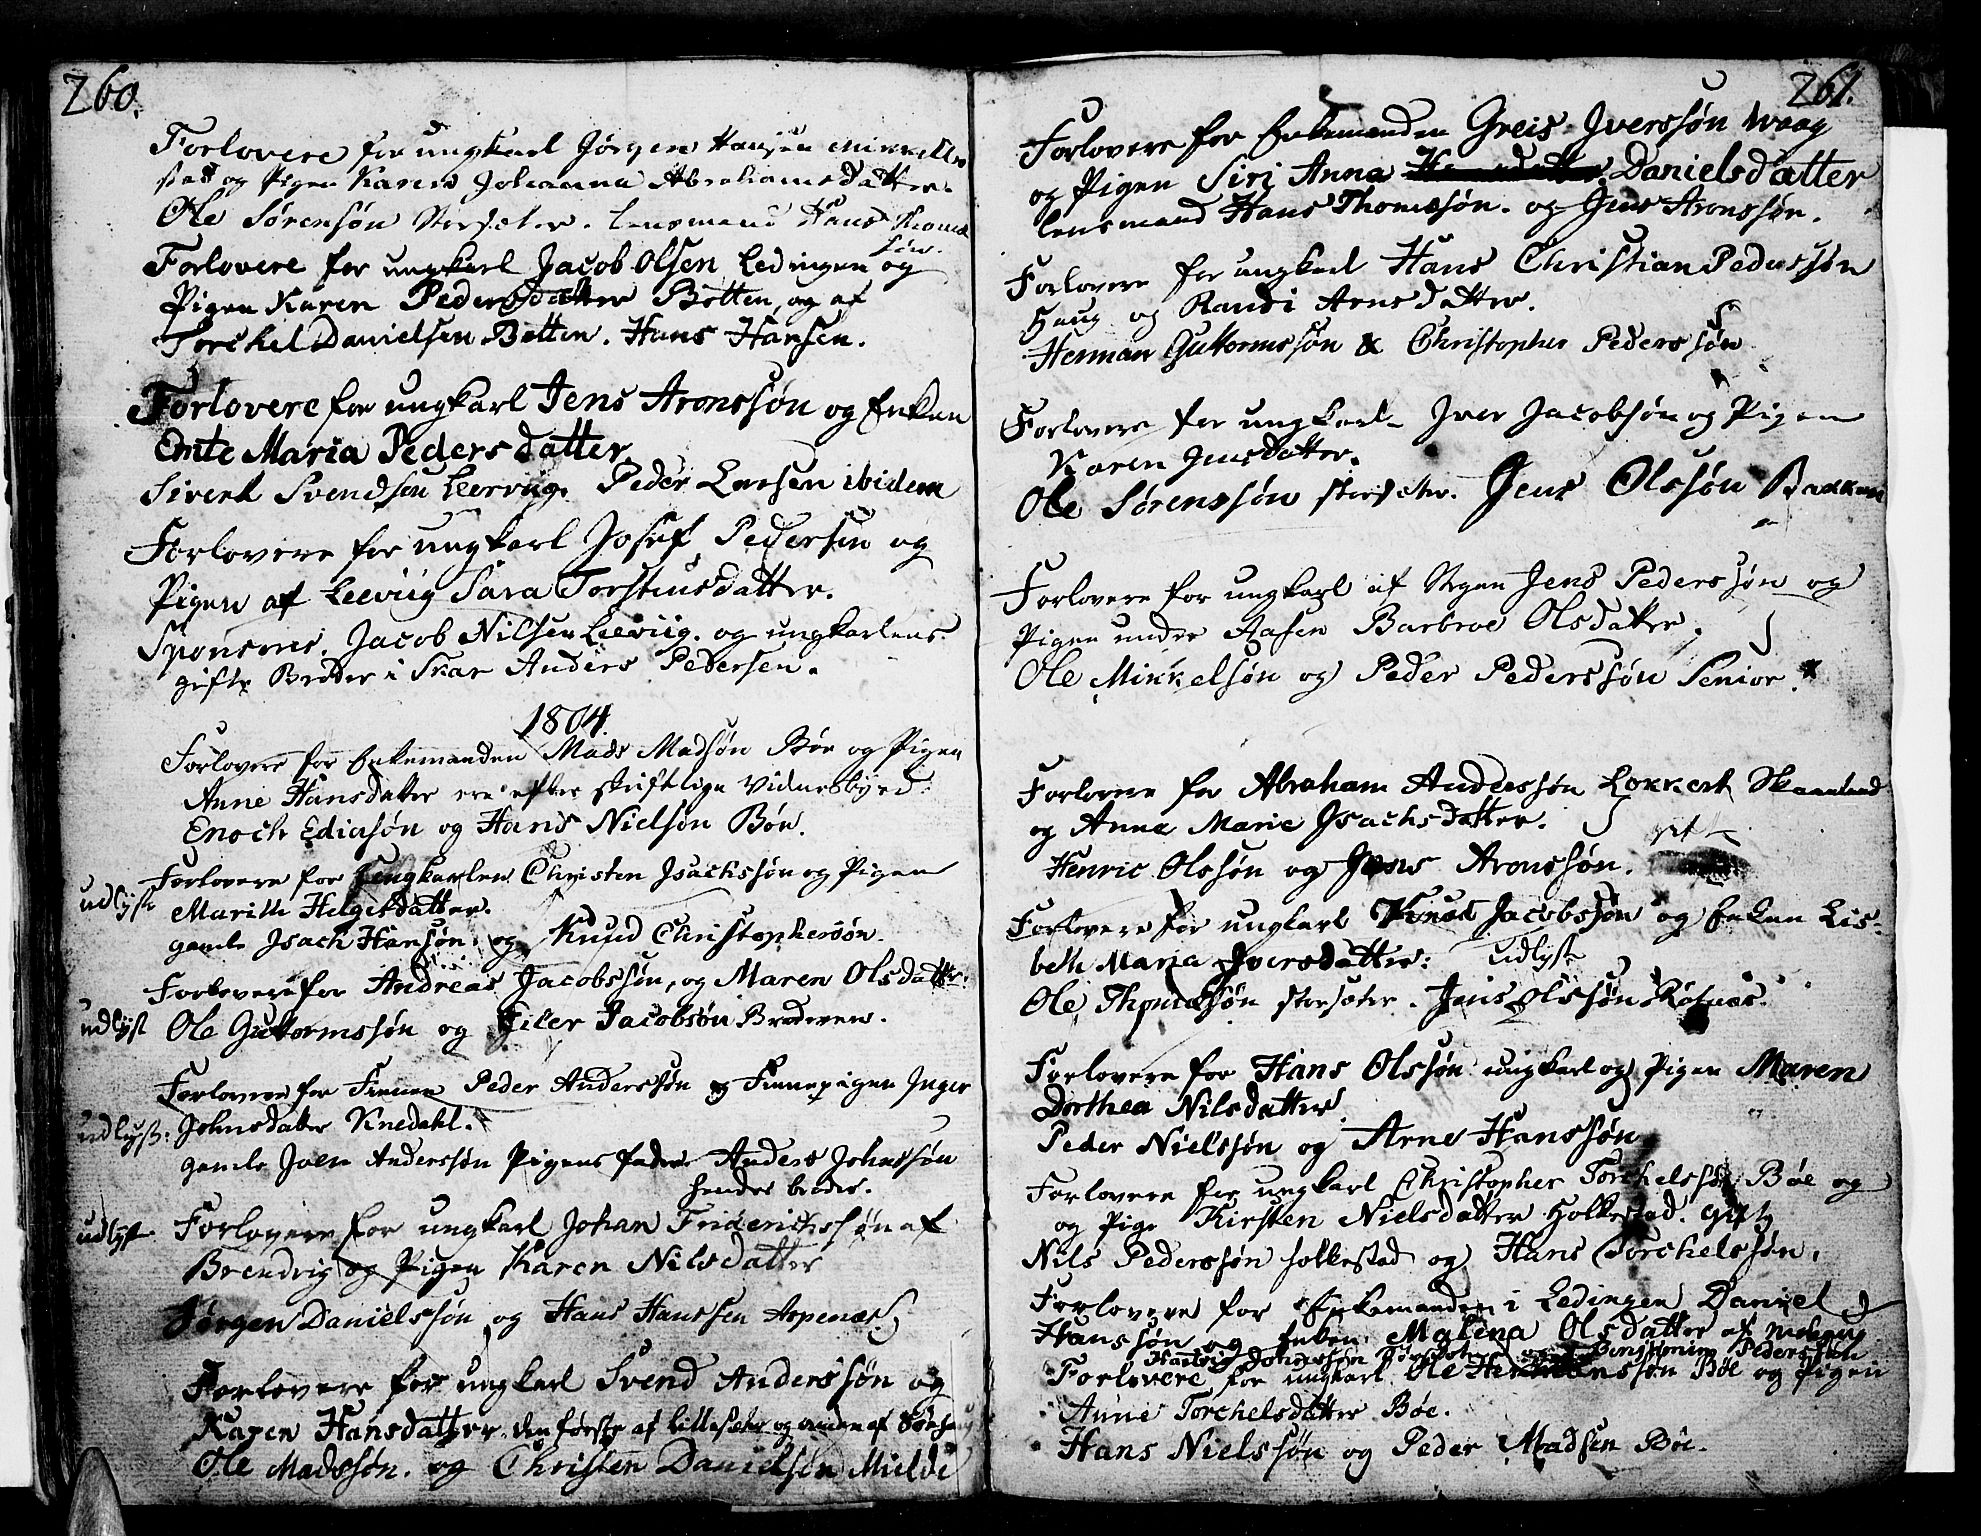 260.
Forlovere for ungkarl Jørgen Hansen Mikkelbo
stad og Pigen Karen Johanna Abrahamsdatter.
Ole Sørensøn Storsæter. Lensmand Hans Thomæ
søn.
Forlovere for ungkarl Jacob Olsen Ledingen og
Pigen Karen Pedersdatter Botten, og af
Torchel Danielsen Botten. Hans Hansen.
Forlovere for ungkarl Jens Aronssøn og Enken
Emte Maria Pedersdatter
Sivert Svendsen Leervig. Peder Larsen ibidem
Forlovere for ungkarl Josef Pedersen og
Pigen af Leeviig Sara Torstensdatter.
Sponsores. Jacob Nilsen Leeviig. og ungkarlens
gifte Broder i Skar Anders Pedersen.
1804.
Forlovere for Enkemanden Mads Madsøn Böe og Pigen
Anne Hansdatter ere efter skriftlige Vidnesbyrd
Enoch Ediasøn og Hans Nielsøn Böe.
udlyst Forlovere for Ungkarlen Christen Isachssøn og Pigen
Marith Helgesdatter.
gamle Isach Hansøn og Knud Christophersøn.
Forlovere for Andreas Jacobssøn, og Maren Olsdatter
udlyst Ole Guttormssøn og Eiler Jacobsøn Broderen.
Forlovere for Finnen Peder Anderssøn og Finnepigen Inger
udlyst: Johnsdatter Knedahl.
gamle Joen Anderssøn Pigens fader Anders Johnssøn
hendes broder.
udlyst Forlovere for ungkarl Johan Friderichssøn af
Brendvig og Pigen Karen Nilsdatter
Jørgen Danielssøn og Hans Hanssen Aspenæs
Forlovere for ungkarl Svend Anderssøn og
Karen Hansdatter den første af Lillesæter og anden af
Ole Madssøn. og Christen Danielsøn Mielde
261.
Forlovere for Enkemanden Greis Iverssøn Waag
og Pigen Siri Anna Danielsdatter
Lensmand Hans Thomæsøn. og Jens Aronssøn.
Forlovere for ungkarl Hans Christian Pederssøn
Haug og Randi Arnsdatter.
Herman Guttormssøn & Christopher Pederssøn
Forlovere for ungkarl Iver Jacobsøn og Pigen
Karen Jensdatter.
Ole Sørenssøn Storsæter. Jens Olssøn Bakken
Forlovere for ungkarl af Stegen Jens Pederssøn og
Pigen under Aasen Barbroe Olsdatter.
Ole Mikkelsøn og Peder Pederssøn Senior.
Forlovere for Abraham Anderssøn Lokkert Skaanland
og Anne Marie Isachsdatter. gift
Henric Olssøn og Jens Aronssøn.
Forlovere for ungkarl Knud Jacobssøn og Enken Lis-
beth Maria Iversdatter: udlyst
Ole Thomæsøn Storsæter. Jens Olssøn Røsnæs.
Forlovere for Hans Olssøn ungkarl og Pigen Maren
Dorthea Nilsdatter
Peder Nielssøn og Arne Hanssøn
Forlovere for ungkarl Christopher Torchelssøn Böe og
og Pige Kirsten Nielsdatter Holkestad. gift
Nils Pederssøn Holkestad og Hans Torchelssøn.
Forlovere for Enkemanden i Ledingen Daniel
Hanssøn og Enken Malena Olsdatter af
Hartvig Johanssøn Pederssøn
Forlovere for ungkarl Ole Hermanssøn Böe og Pigen
Anne Torchelsdatter Böe.
Hans Nielssøn og Peder Madsen Böe.